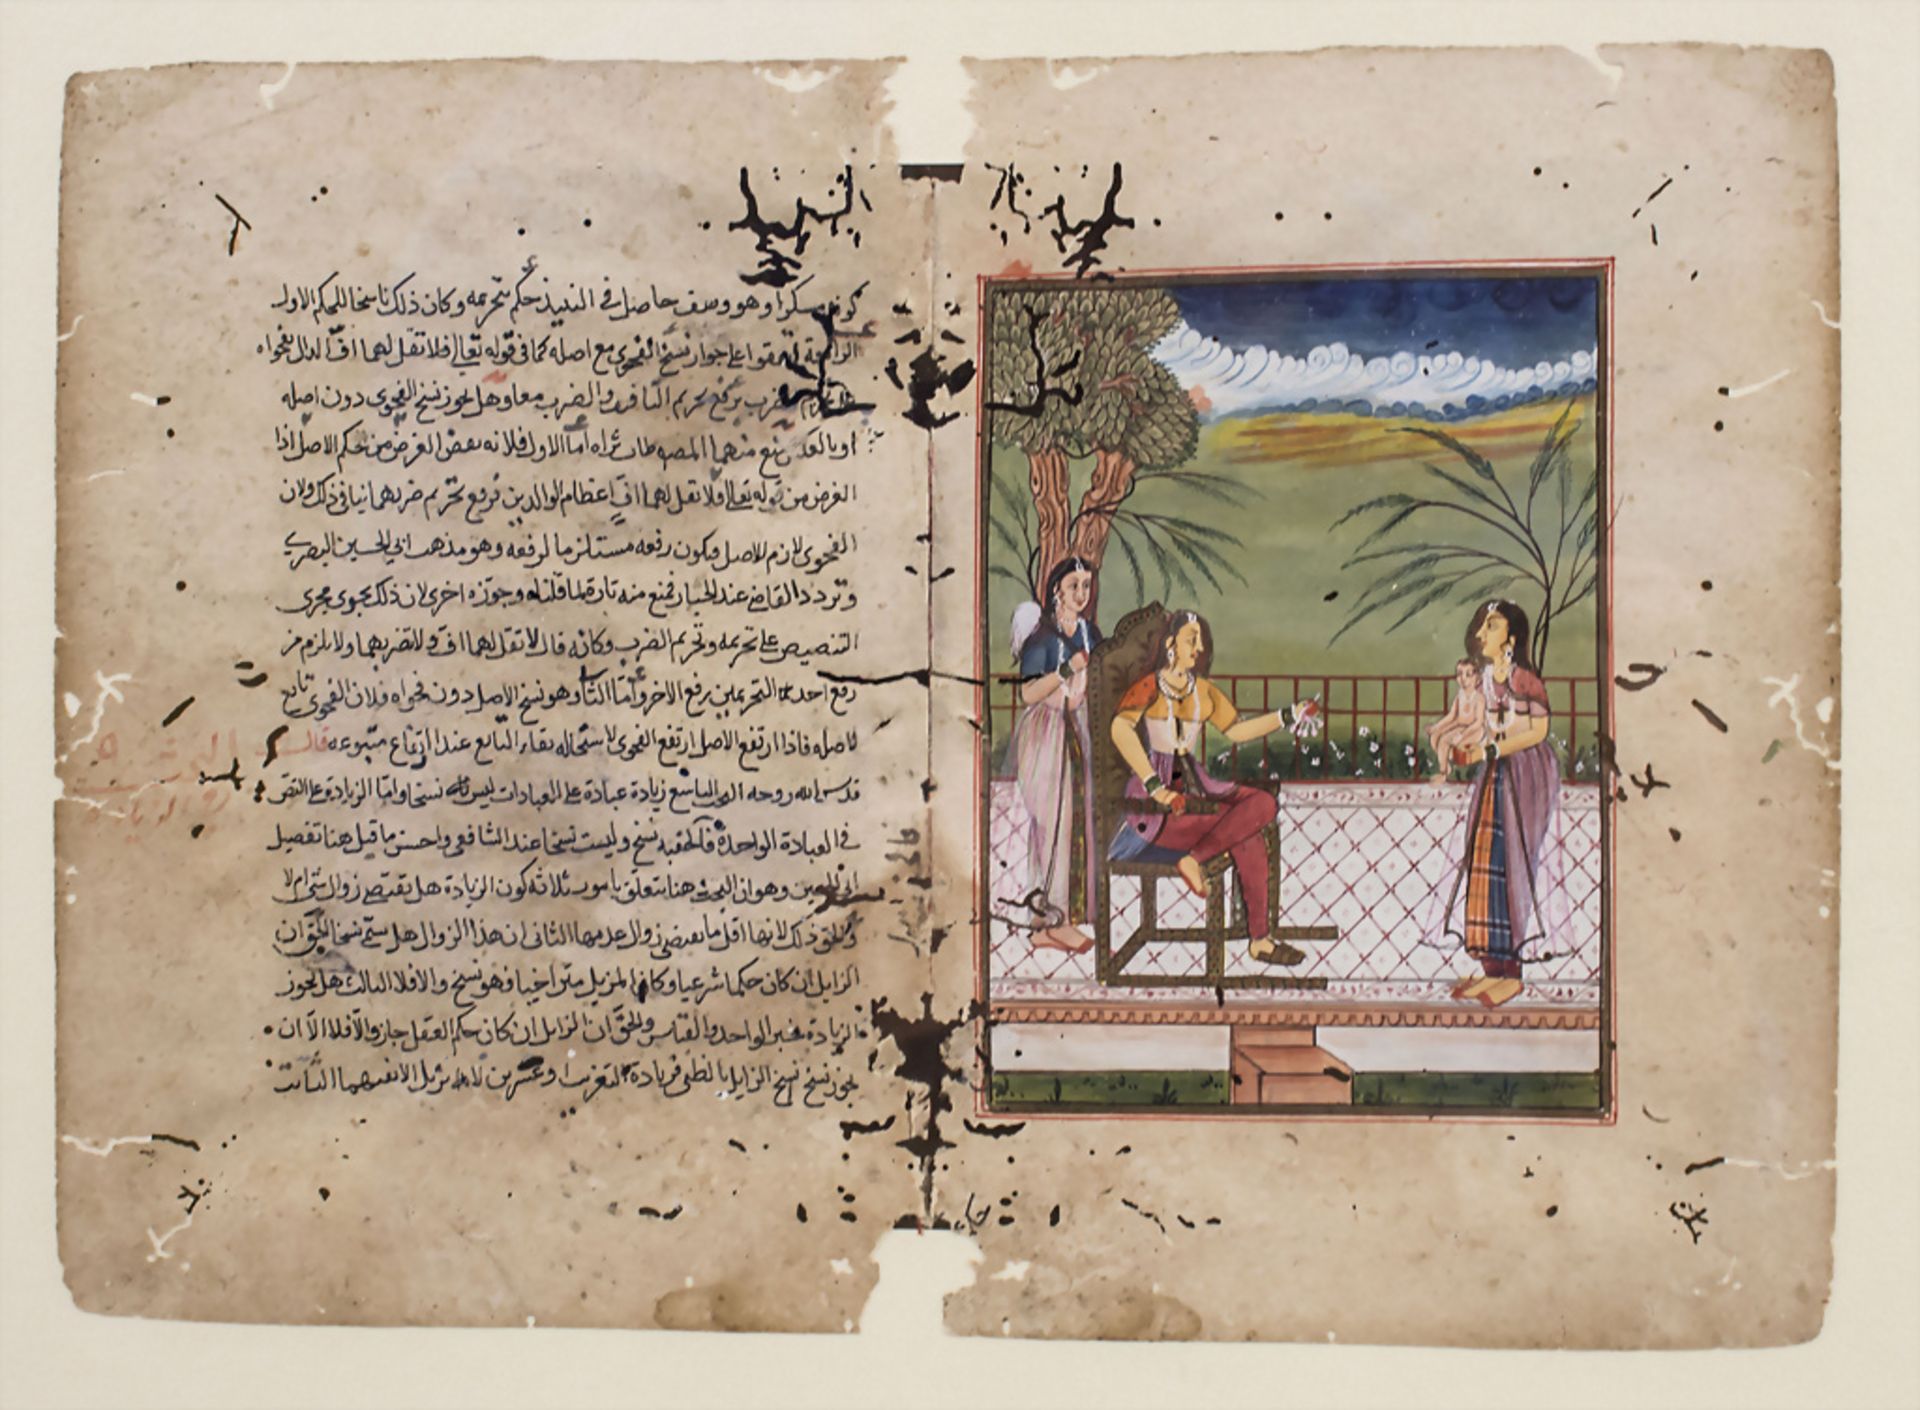 كونه مسكرا وهو وصف حاصل في النبيذ حكم بتحريمه وكان ذلك ناسخا للحكم الاول
الرابعة اتفقوا على جواز نسخ الفحوى مع اصله كما في قوله تعالى فلا تقل لهما اف الدال بفحواه
على تحريم الضرب برفع تحريم التافيف والضرب معا وهل يجوز نسخ الفحوى دون اصله
او بالعكس منع منهما المصنف طاب ثراه اما الاول فلانه نقض الغرض من حكم الاصل اذا
الغرض من قوله تعالى فلا تقل لهما اف اعظام الوالدين فرفع تحريم ضربهما ينافي ذلك ولان
الفحوى لازم للاصل فيكون رفعه مستلزما لرفعه وهو مذهب ابي الحسين البصري
وتردد القاضي عبد الجبار فمنع منه تارة لما قلناه وجوزه اخرى لان ذلك يجري مجرى
التنصيص على تحريمه وتحريم الضرب وكانه قال لا تقل لهما اف ولا تضربهما ولا يلزم من
رفع احد التحريمين رفع الاخر واما الثاني وهو نسخ الاصل دون فحواه فلان الفحوى تابع
لاصله فاذا ارتفع الاصل ارتفع الفحوى لاستحالة بقاء التابع عند ارتفاع متبوعه قال
قدس الله روحه البحث التاسع زيادة عبادة على العبادات ليس نسخا واما الزيادة على النص
في العبادة الواحدة فالحنفية نسخ وليست نسخا عند الشافعي واحسن ما قيل هنا تفصيل
ابي الحسين وهو ان البحث هنا يتعلق بامور ثلاثة كون الزيادة هل يقتضي زوال شيء ام لا
والحق ذلك لانها اقل ما يقتضي زوال عدمها الثاني ان هذا الزوال هل يسمى نسخا الحق ان
الزايل ان كان حكما شرعيا وكان المزيل متراخيا فهو نسخ والا فلا الثالث هل يجوز
الزيادة بخبر الواحد والقياس والحق ان الزايل ان كان حكم العقل جاز والا فلا الا ان
يجوز نسخ الزايل بالظني فزيادة التغريب او عشرين لا يزيل الا نفيهما الثابت